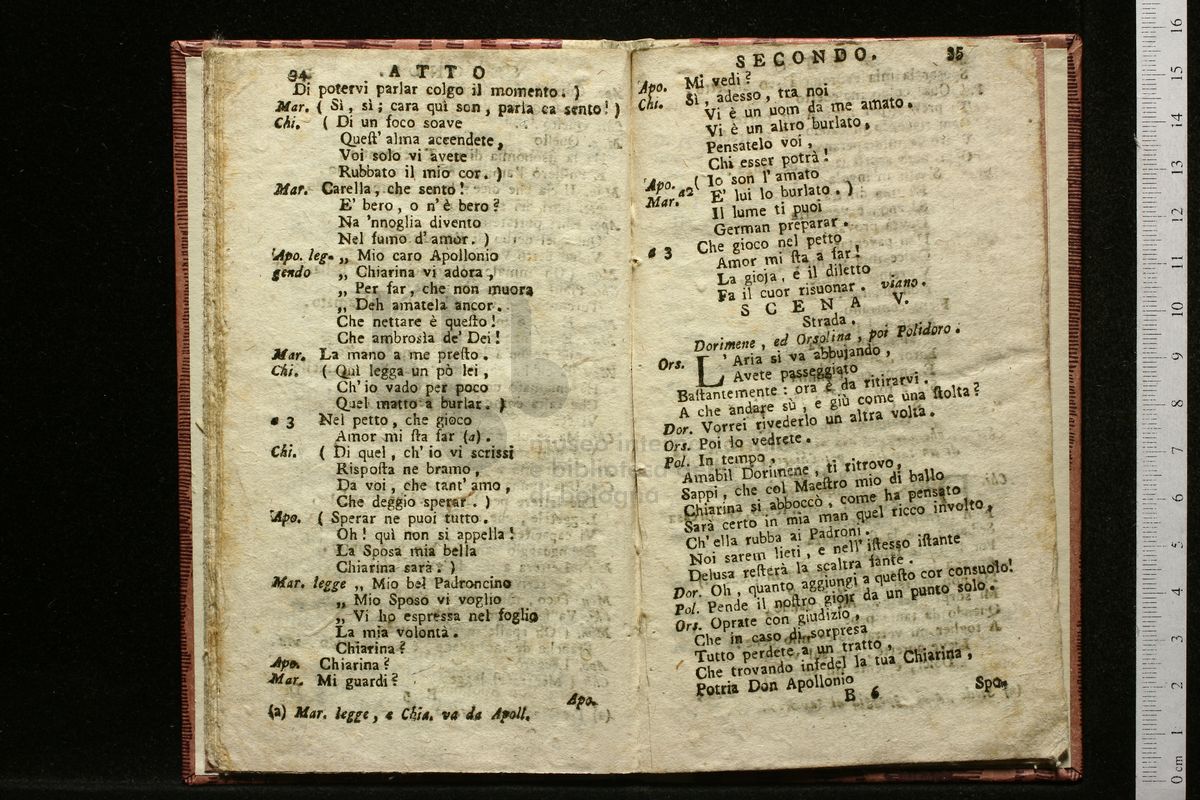 34 ATTO
Di potervi parlar colgo il momento. )
Mar. ( Sì, sì; cara quì son, parla ca sento! )
Chi. ( Di un foco soave
Queſt' alma accendete,
Voi solo vi avete
Rubbato il mio cor. )
Mar. Carella, che sento!
E' bero, o n'è bero?
Na 'nnoglia divento
Nel fumo d'amor. )
Apo. leg- „ Mio caro Apollonio
gendo „ Chiarina vi adora,
„ Per far, che non muora
„ Deh amatela ancor.
Che nettare è queſto!
Che ambrosìa de' Dei!
Mar. La mano a me preſto.
Chi. ( Quì legga un pò lei,
Ch' io vado per poco
Quel matto a burlar. )
a 3 Nel petto, che gioco
Amor mi ſta far (a).
Chi. ( Di quel, ch' io vi scrissi
Risposta ne bramo,
Da voi, che tant' amo,
Che deggio sperar. )
Apo. ( Sperar ne puoi tutto.
Oh! quì non si appella!
La Sposa mia bella
Chiarina sarà. )
Mar. legge „ Mio bel Padroncino
„ Mio Sposo vi voglio
„ Vi ho espressa nel foglio
La mia volontà.
Chiarina?
Apo. Chiarina?
Mar. Mi guardi?
Apo.
(a) Mar. legge, e Chia. va da Apoll.
SECONDO. 35
Apo. Mi vedi?
Chi. Sì, adesso, tra noi
Vi è un uom da me amato.
Vi è un altro burlato,
Pensatelo voi,
Chi esser potrà!
Apo. ( Io son l'amato
Mar. a2 E' lui lo burlato. )
Il lume ti puoi
German preparar.
a 3 Che gioco nel petto
Amor mi ſta a far!
La gioja, e il diletto
Fa il cuor risuonar. viano.
SCENA V.
Strada.
Dorimene, ed Orsolina, poi Polidoro.
Ors. L'Aria si va abbujando,
Avete passeggiato
Baſtantemente: ora è da ritirarvi.
A che andare sù, e giù come una ſtolta?
Dor. Vorrei rivederlo un altra volta.
Ors. Poi lo vedrete.
Pol. In tempo,
Amabil Dorimene, ti ritrovo,
Sappi, che col Maeſtro mio di ballo
Chiarina si abboccò, come ha pensato
Sarà certo in mia man quel ricco involto,
Ch'ella rubba ai Padroni.
Noi sarem lieti, e nell' iſtesso iſtante
Delusa reſterà la scaltra fante.
Dor. Oh, quanto aggiungi a queſto cor consuolo!
Pol. Pende il noſtro gioir da un punto solo.
Ors. Oprate con giudizio,
Che in caso di sorpresa
Tutto perdete a un tratto,
Che trovando infedel la tua Chiarina,
Potria Don Apollonio
B 6 Spo-